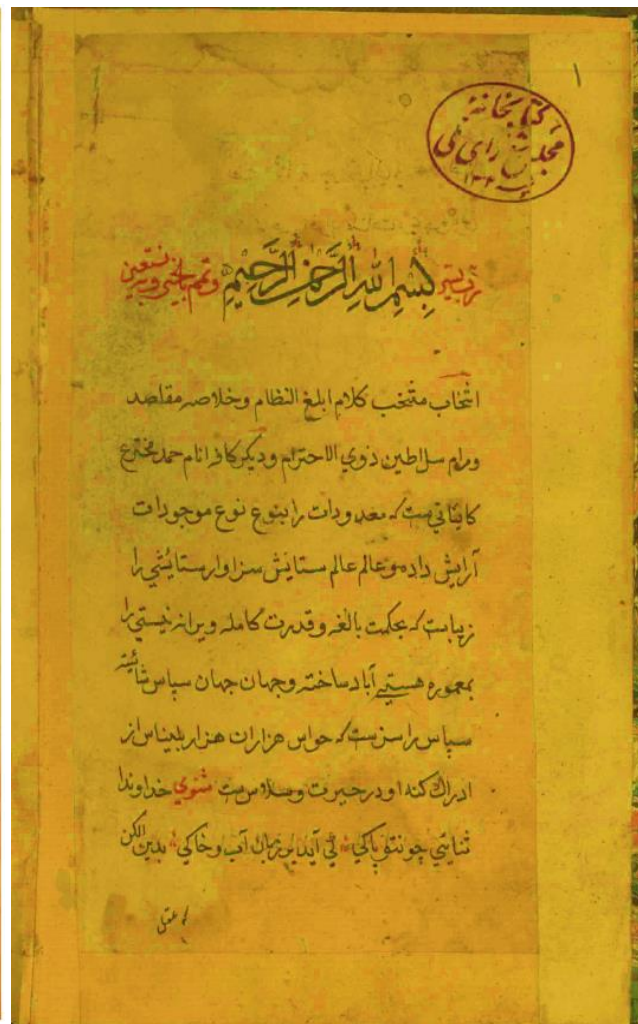 ۱
کتابخانه
مجلس شورای ملی
رب یسر بسم الله الرحمن الرحیم وتمم بالخیر وبه نستعین
انتخاب منتخب کلام ابلغ النظام وخلاصه مقاصد
ومرام سلاطین ذوی الاحترام ودیکر کافه انام حمد مخترع
کایناتی ست که معدودات را بنوع نوع موجودات
آرایش داده وعالم عالم ستایش سزاوار ستایشی را
زیباست که بحکمت بالغه وقدرت کامله ویرانه نیستی را
بمعموره هستیی آباد ساخته وجهان جهان سپاس شائسته
سپاس را سزست که حواس هزاران هزار بلیناس از
ادراك کنه او در حیرت وسلاوس ست مثنوی خداوندا
ثنائی چو نتو پاکی نمی آید بر زبان آب وخاکی بدین الکن